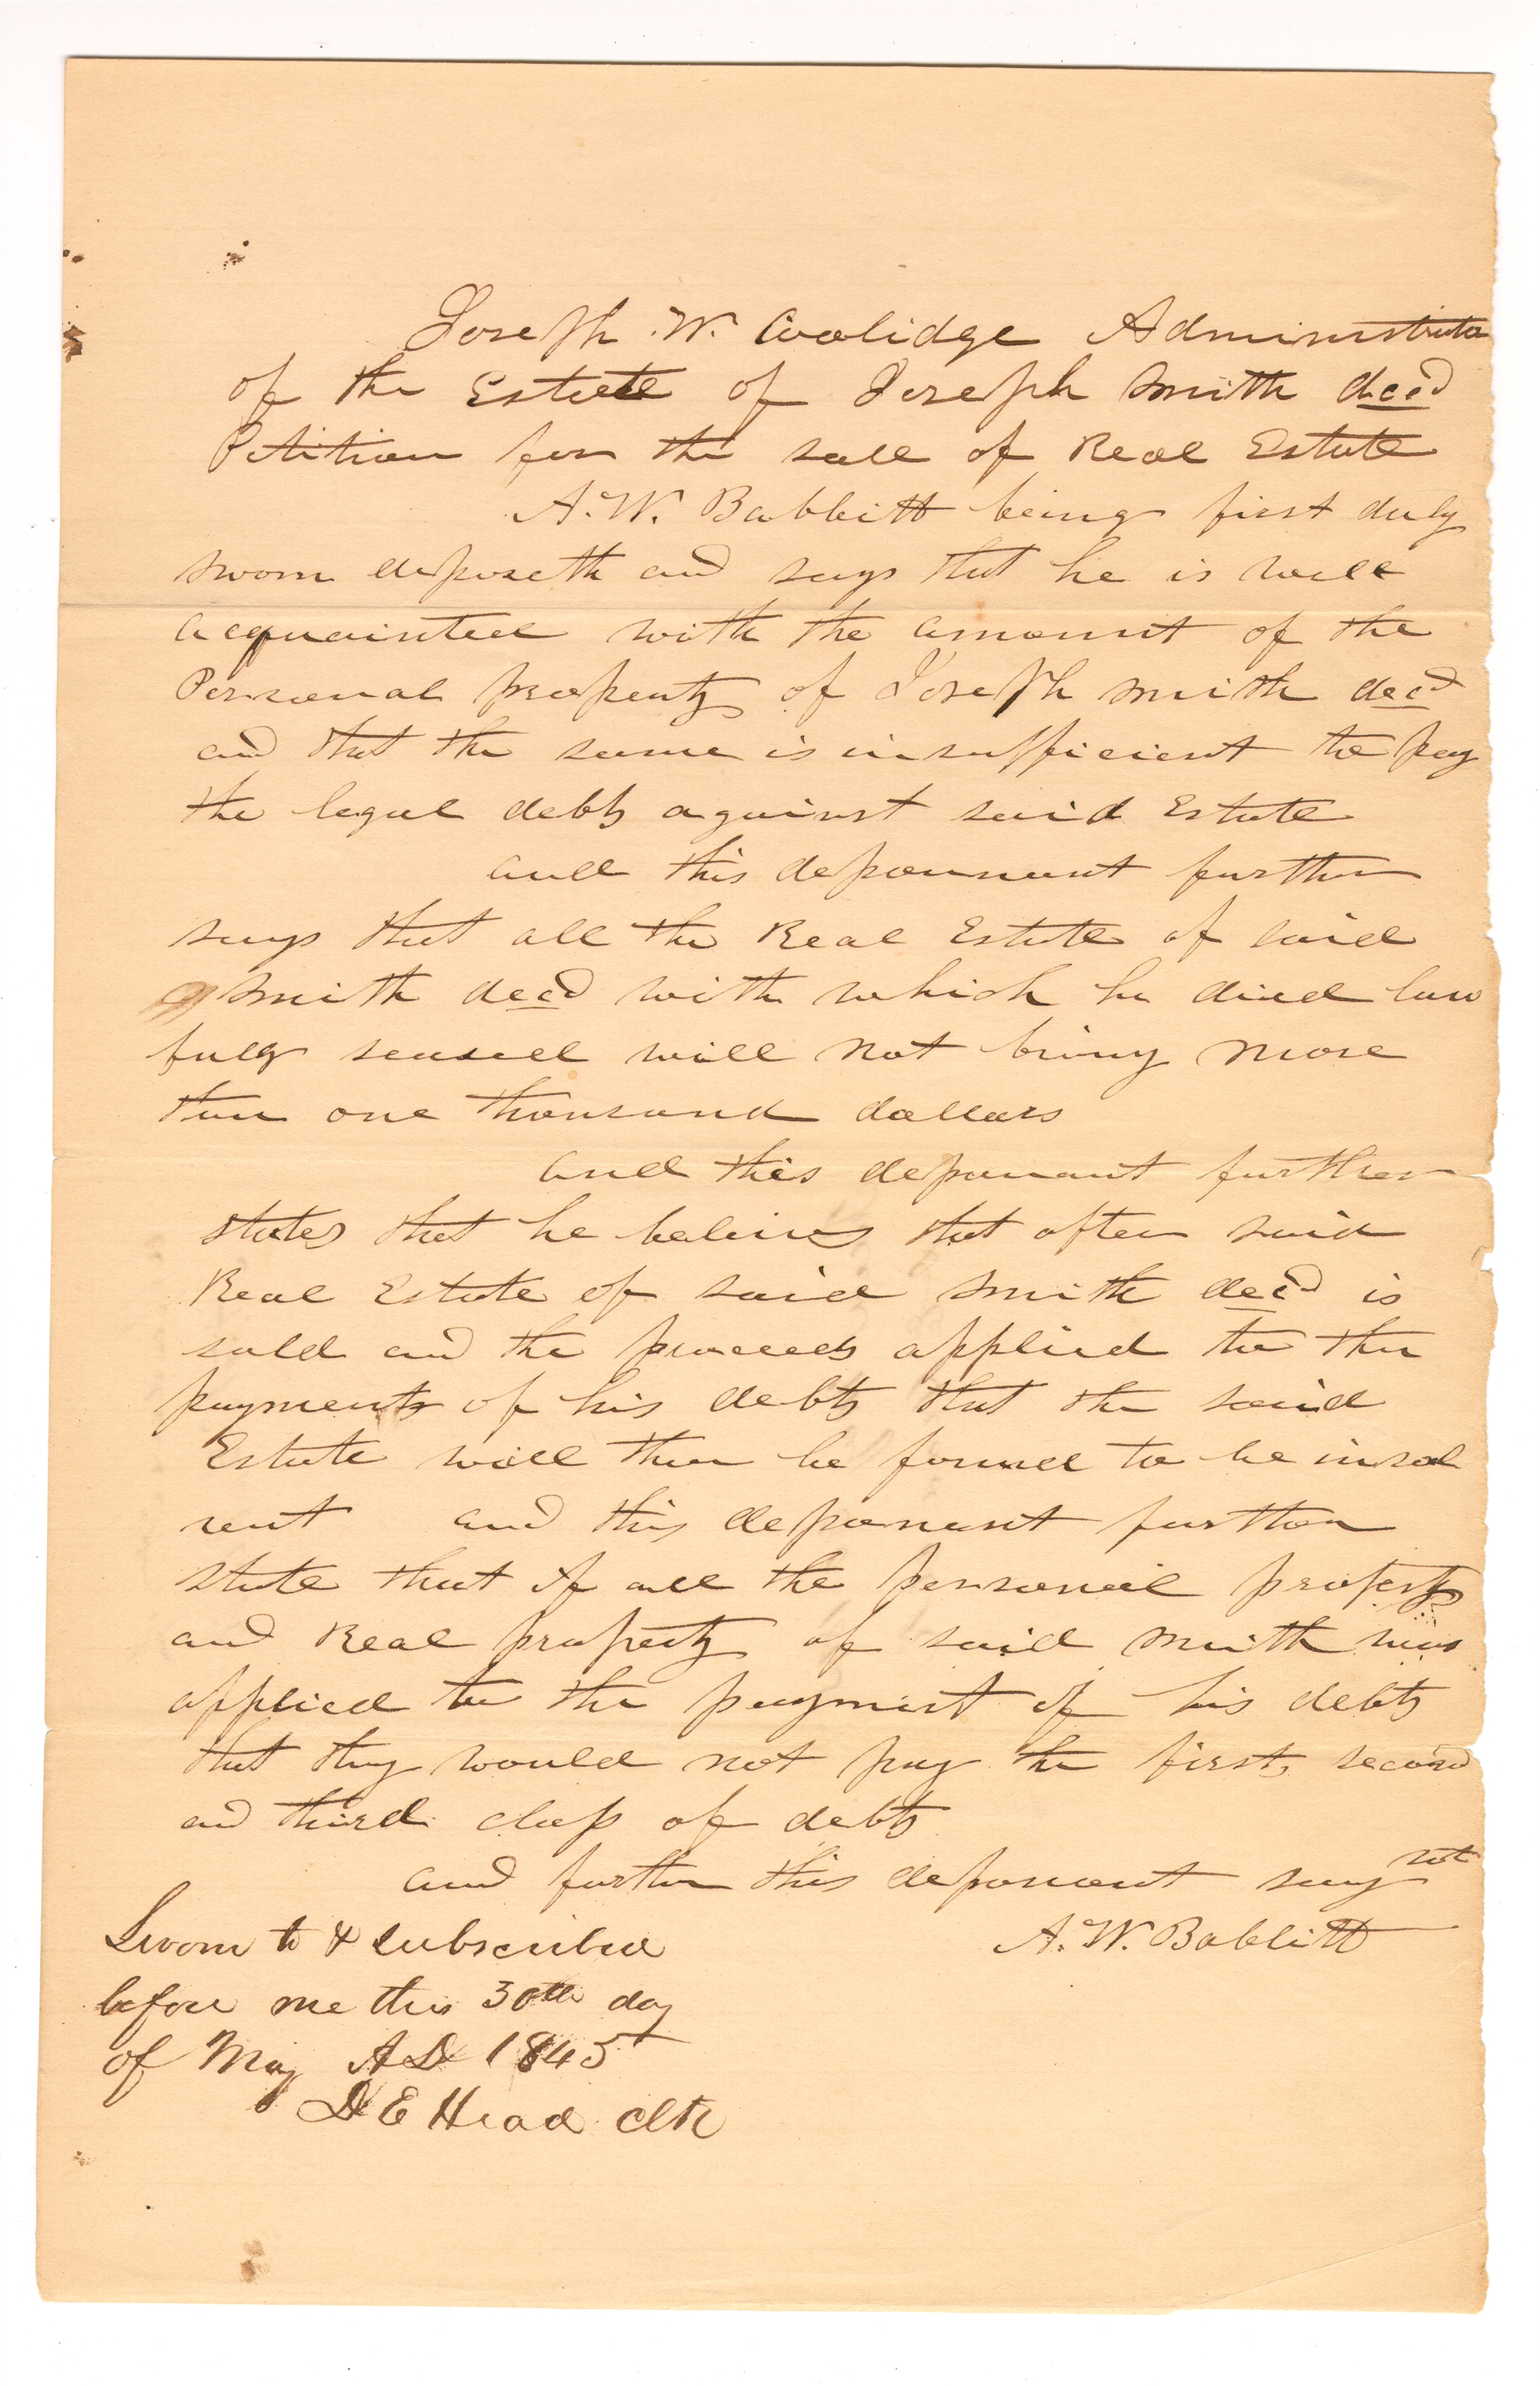 Joseph W. Coolidge Administrator
of the Estate of Joseph Smith decd
Petition for the sale of Real Estate
A. W. Babbitt being first duly
sworn deposeth and says that he is well
acquainted with the amount of the
Personal property of Joseph Smith decd
and that the same is insufficient to pay
the legal debts against said Estate
and this deponnent further
says that all the Real Estate of said
Smith decd with which he died law
fully seased will not bring more
than one thousand dollars
and this deponant further
states that he believes that after said
Real Estate of said Smith decd is
sold and the proceeds applied to the
payments of his debts that the said
Estate will then be found to be insol
vent and this deponent further
state that if all the personal property
and Real property of said Smith was
applied to the payment of his debts
that they would not pay the first, second
and third class of debts
and further this deponent say not
A. W. Babbitt
Sworn to & subscribed
before me this 30th day
of May AD 1845
D E Head Clk